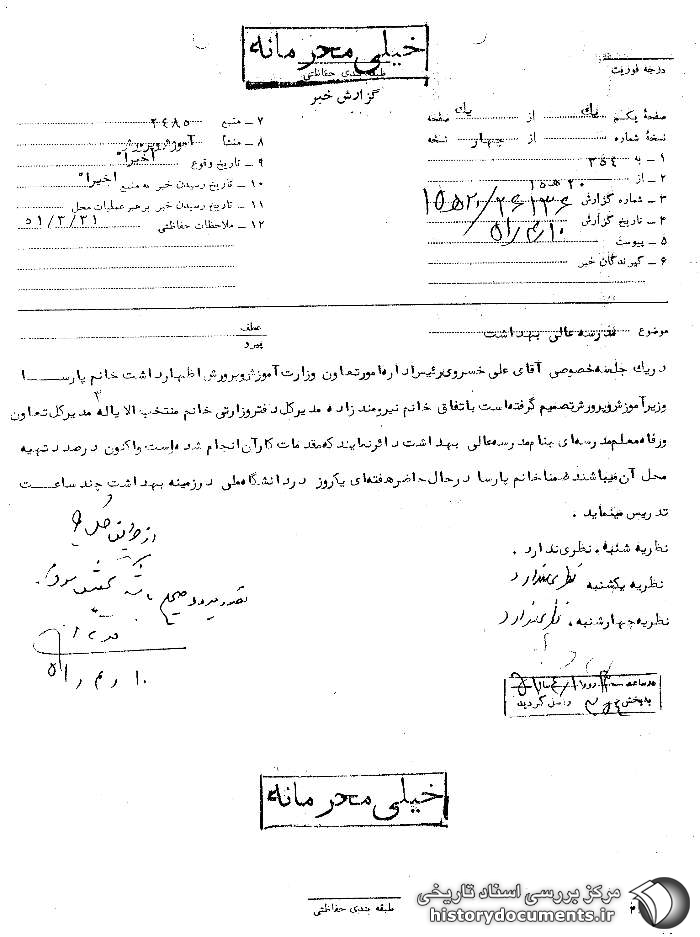 خیلی محرمانه
طبقه بندی حفاظتی
گزارش خبر
درجه فوریت
صفحهٔ یکم یک از یک صفحه
نسخهٔ شماره از چهار نسخه
۱ ـ به ۳۵۴
۲ ـ از ۲۰ ه‍ ۱۵
۳ ـ شماره گزارش
۴ ـ تاریخ گزارش ۵۱/۴/۱۰
۵ ـ پیوست
۶ ـ گیرندگان خبر
۷ ـ منبع ۲۴۸۵
۸ ـ منشأ آموزش و پرورش
۹ ـ تاریخ وقوع اخیرا"
۱۰ ـ تاریخ رسیدن خبر به منبع اخیرا"
۱۱ ـ تاریخ رسیدن خبر برهبر عملیات محل ۵۱/۳/۳۱
۱۲ ـ ملاحظات حفاظتی
موضوع مدرسه عالی بهداشت
عطف
پیرو
دریک جلسه خصوصی آقای علی خسروی رئیس اداره امور تعاون وزارت آموزش و پرورش اظهارداشت خانم پارسا
وزیرآموزش و پرورش تصمیم گرفته است باتفاق خانم نیرومند زاده مدیرکل دفتروزارتی خانم منتخب الایاله مدیرکل تعاون
ورفاه معلم مدرسه ای بنام مدرسه عالی بهداشت دائرنمایند که مقدمات کارآن انجام شده است واکنون درصدد تهیه
محل آن میباشند ضمنا خانم پارسا درحال حاضر هفته ای یکروز دردانشگاه ملی درزمینه بهداشت چند ساعت
تدریس مینماید.
نظریه شنبه. نظری ندارد.
نظریه یکشنبه نظری ندارد
نظریه چهارشنبه. نظری ندارد
۵۱/۴/۱۰
به بخش واصل گردید
خیلی محرمانه
طبقه بندی حفاظتی
مرکز بررسی اسناد تاریخی
historydocuments.ir